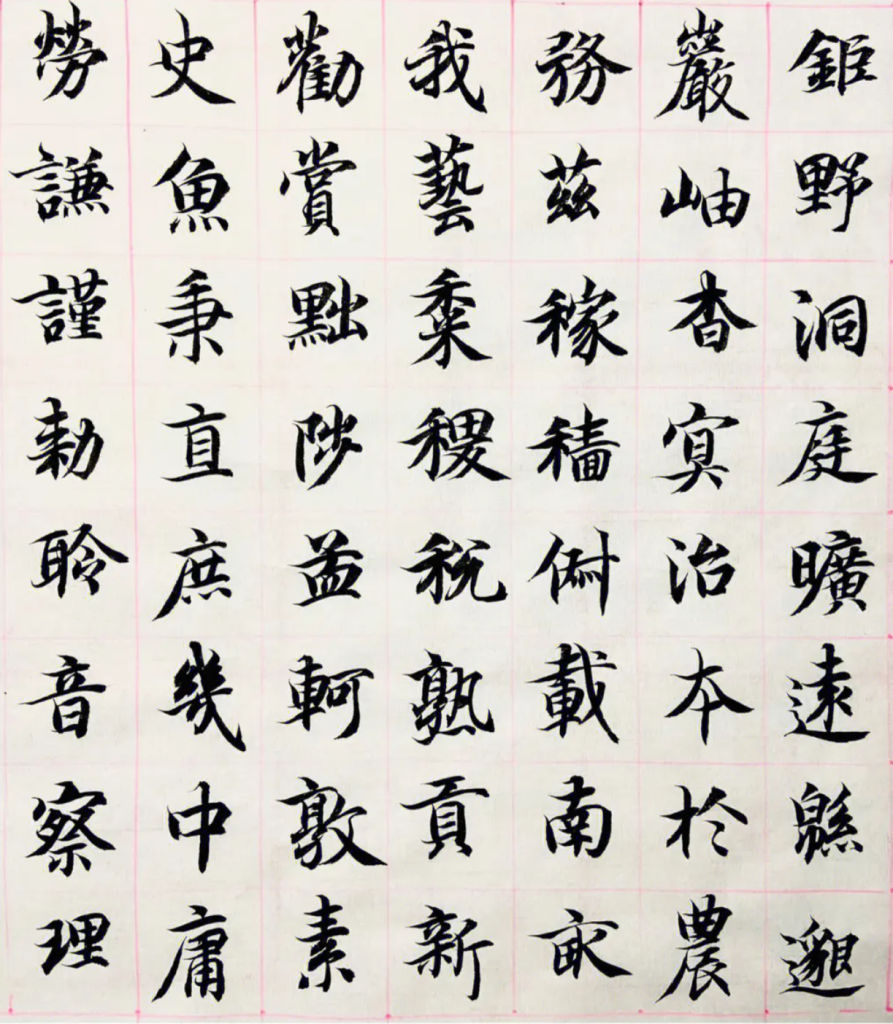 鉅野洞庭曠遠緜邈
巖岫杳冥治本於農
務茲稼穡俶載南畝
我藝黍稷稅熟貢新
勸賞黜陟孟軻敦素
史魚秉直庶幾中庸
勞謙謹勅聆音察理